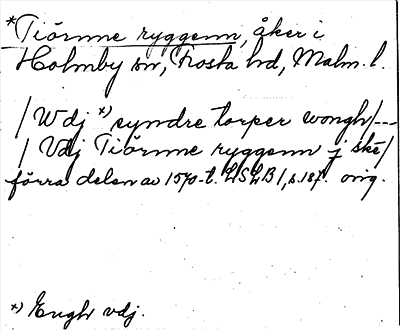 *Tiörnne ryggenn, åker i
Holmby sn, Frosta hd, Malm. l.
/ Wdj *) syndre torper wongh/---
/ Vdj Tiörnne ryggenn j skē/
förra delen av 1570-t. LSLB 1, s. 187. orig.
*) Enghr vdj.